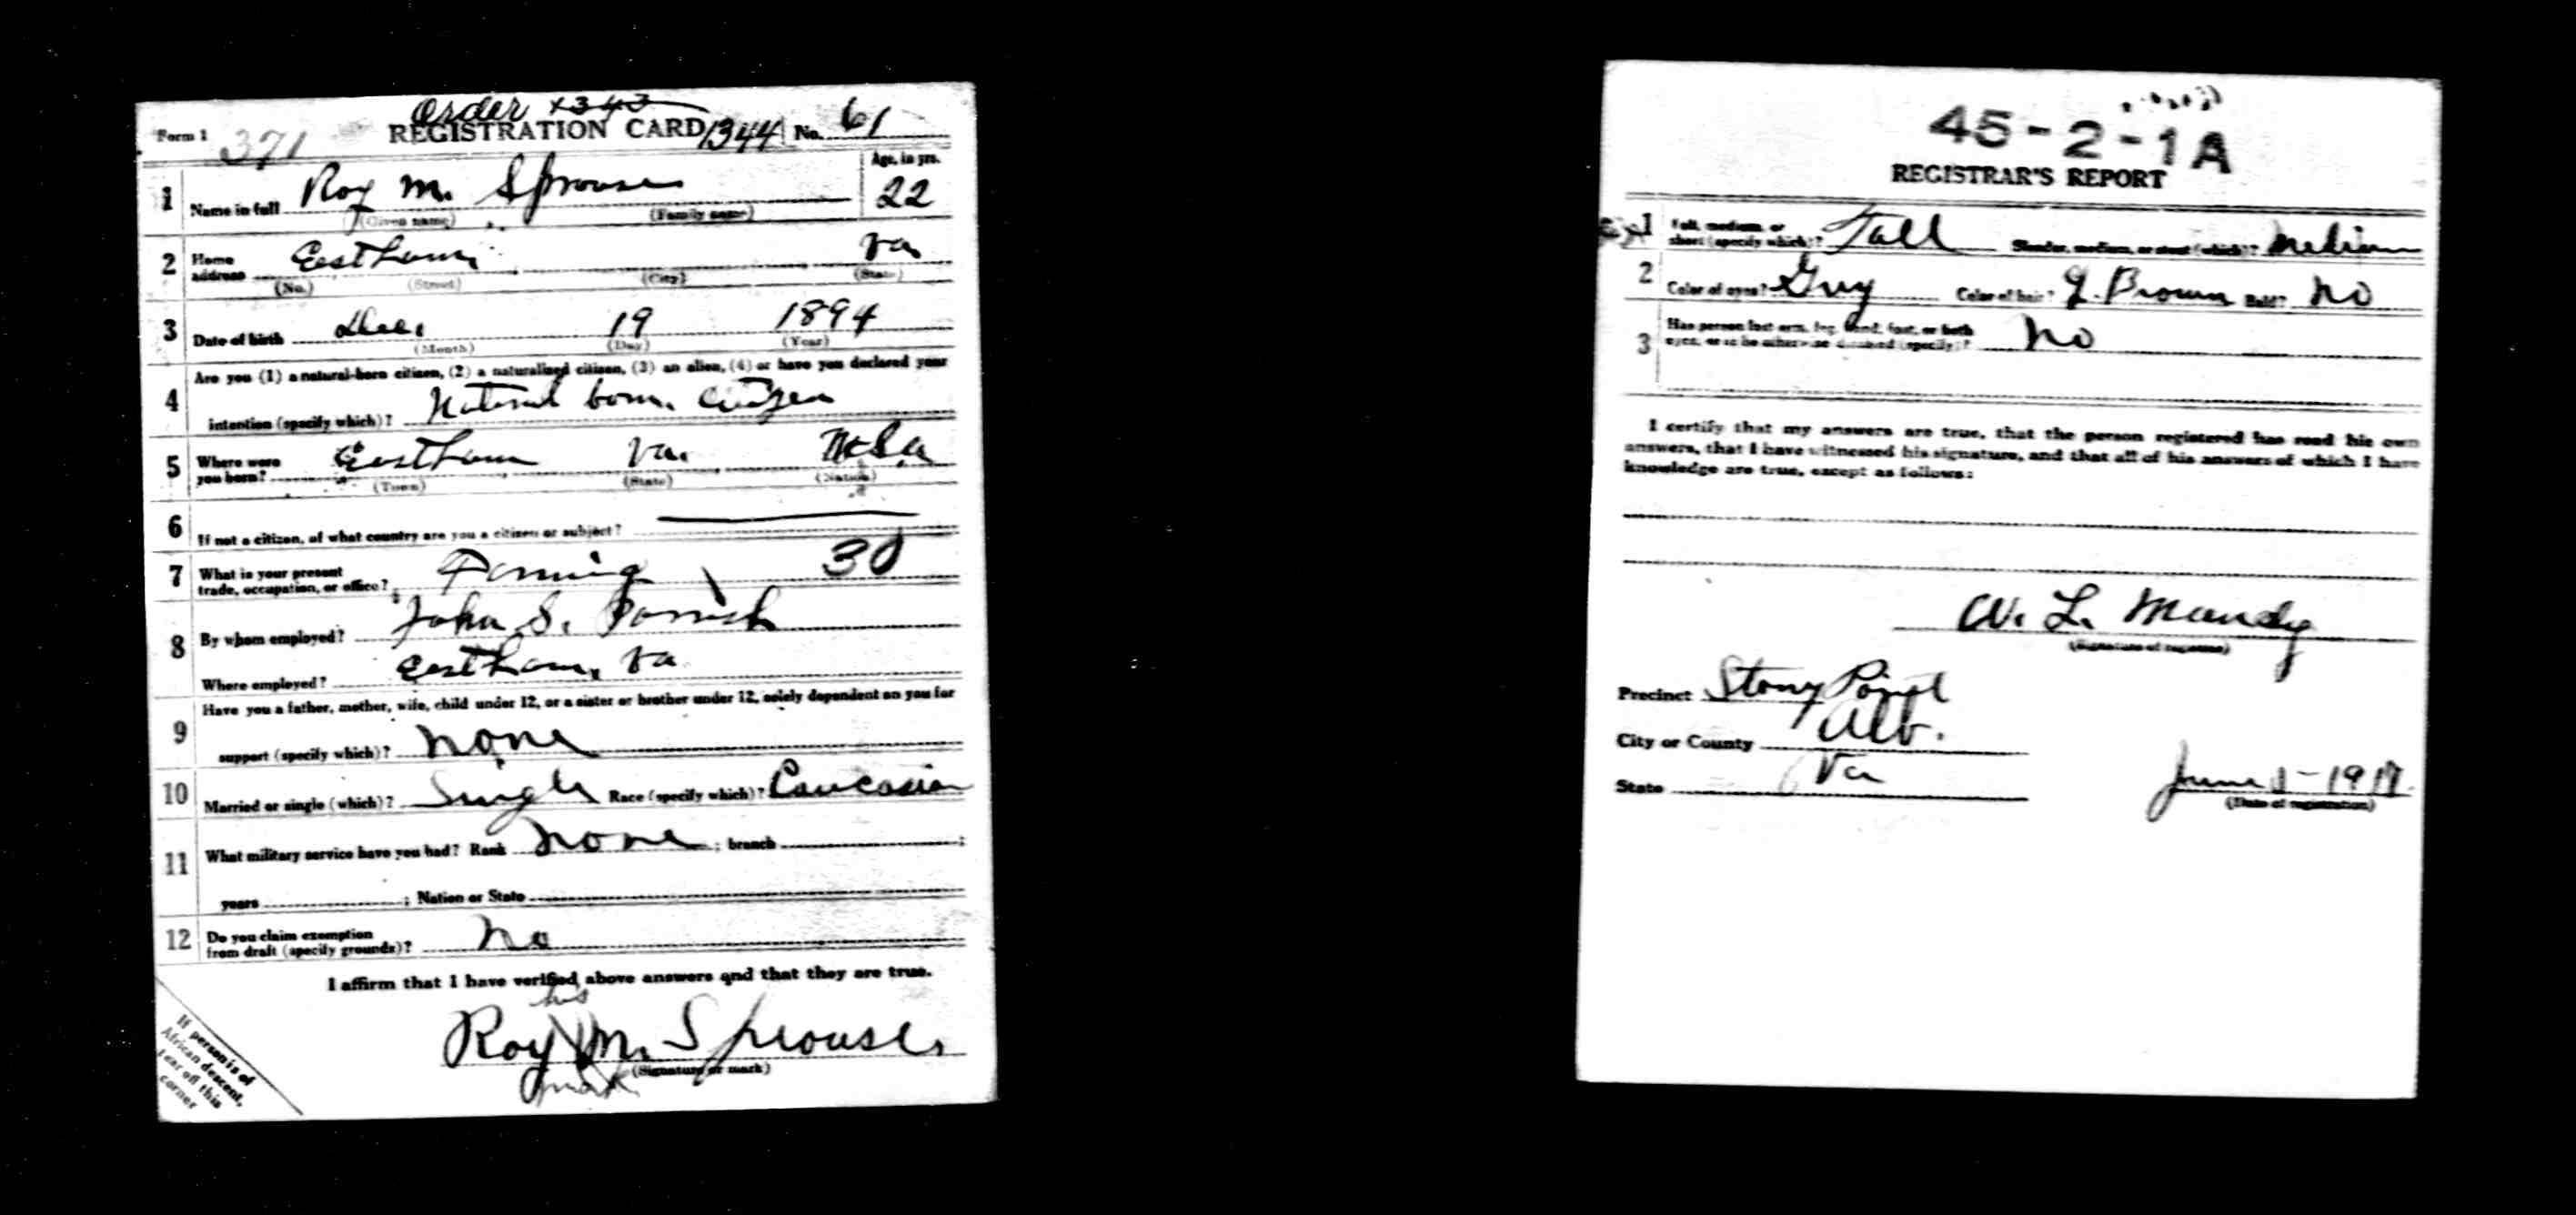 Order 1343
Form 1 371 REGISTRATION CARD 1344 No. 61
1 Name in full Roy M. Sprouse Age, in yrs. 22
(Given name) (Family name)
2 Home address Eastham Va
(No.) (Street) (City) (State)
3 Date of birth Dec. 19 1894
(Month) (Day) (Year)
4 Are you (1) a natural-born citizen, (2) a naturalized citizen, (3) an alien, (4) or have you declared your
intention (specify which)? Natural born citizen
5 Where were you born? Eastham Va. U.S.a
(Town) (State) (Nation)
6 If not a citizen, of what country are you a citizen or subject?
7 What is your present trade, occupation, or office? Farming 30
8 By whom employed? John S. Parrish
Where employed? Eastham, Va
9 Have you a father, mother, wife, child under 12, or a sister or brother under 12, solely dependent on you for
support (specify which)? none
10 Married or single (which)? Single Race (specify which)? Caucasian
11 What military service have you had? Rank none ; branch ;
years ; Nation or State
12 Do you claim exemption from draft (specify grounds)? no
I affirm that I have verified above answers and that they are true.
his
Roy M. Sprouse
mark
(Signature or mark)
If person is of
African descent,
tear off this
corner
45-2-1A
REGISTRAR'S REPORT
1 Tall, medium, or short (specify which)? Tall Slender, medium, or stout (which)? medium
2 Color of eyes? Gray Color of hair? L. Brown Bald? no
3 Has person lost arm, leg, hand, foot, or both eyes, or is he otherwise disabled (specify)? no
I certify that my answers are true, that the person registered has read his own
answers, that I have witnessed his signature, and that all of his answers of which I have
knowledge are true, except as follows:
W. L. Mundy
(Signature of registrar)
Precinct Stony Point
City or County Alb.
State Va June 5-1917.
(Date of registration)